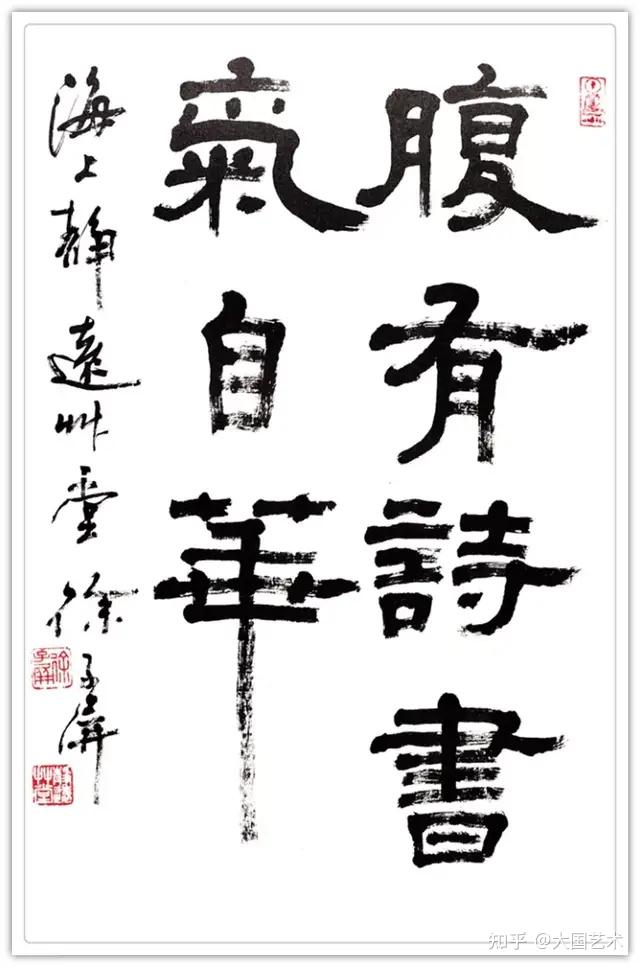 腹有詩書
氣自華
海上靜遠艸堂徐
知乎 @大国艺术